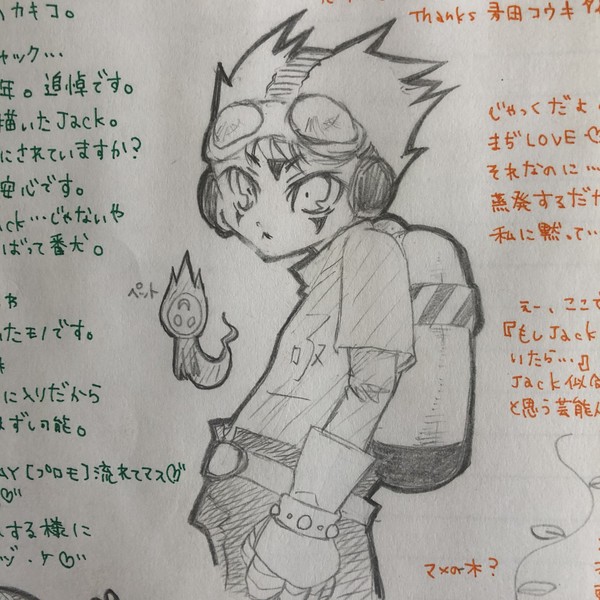 カキコ。
ャック…
年。追悼です。
描いたJack。
にされていますか?
安心です。
ck…じゃないや
ばって番犬。
ゃ
たモノです。
に入りだから
まずし可能。
AY[プロモ]流れてマス♡
♡
する様に
ッジ・ケ♡
ペット
吸
Thanks
コウキ
じゃっくだよ
まぢLOVE♡
それなのに…
蒸発するだ
私に黙って…
えー、ここで
『もしJack
いたら…』
Jack似合
と思う芸能人
マメの木?